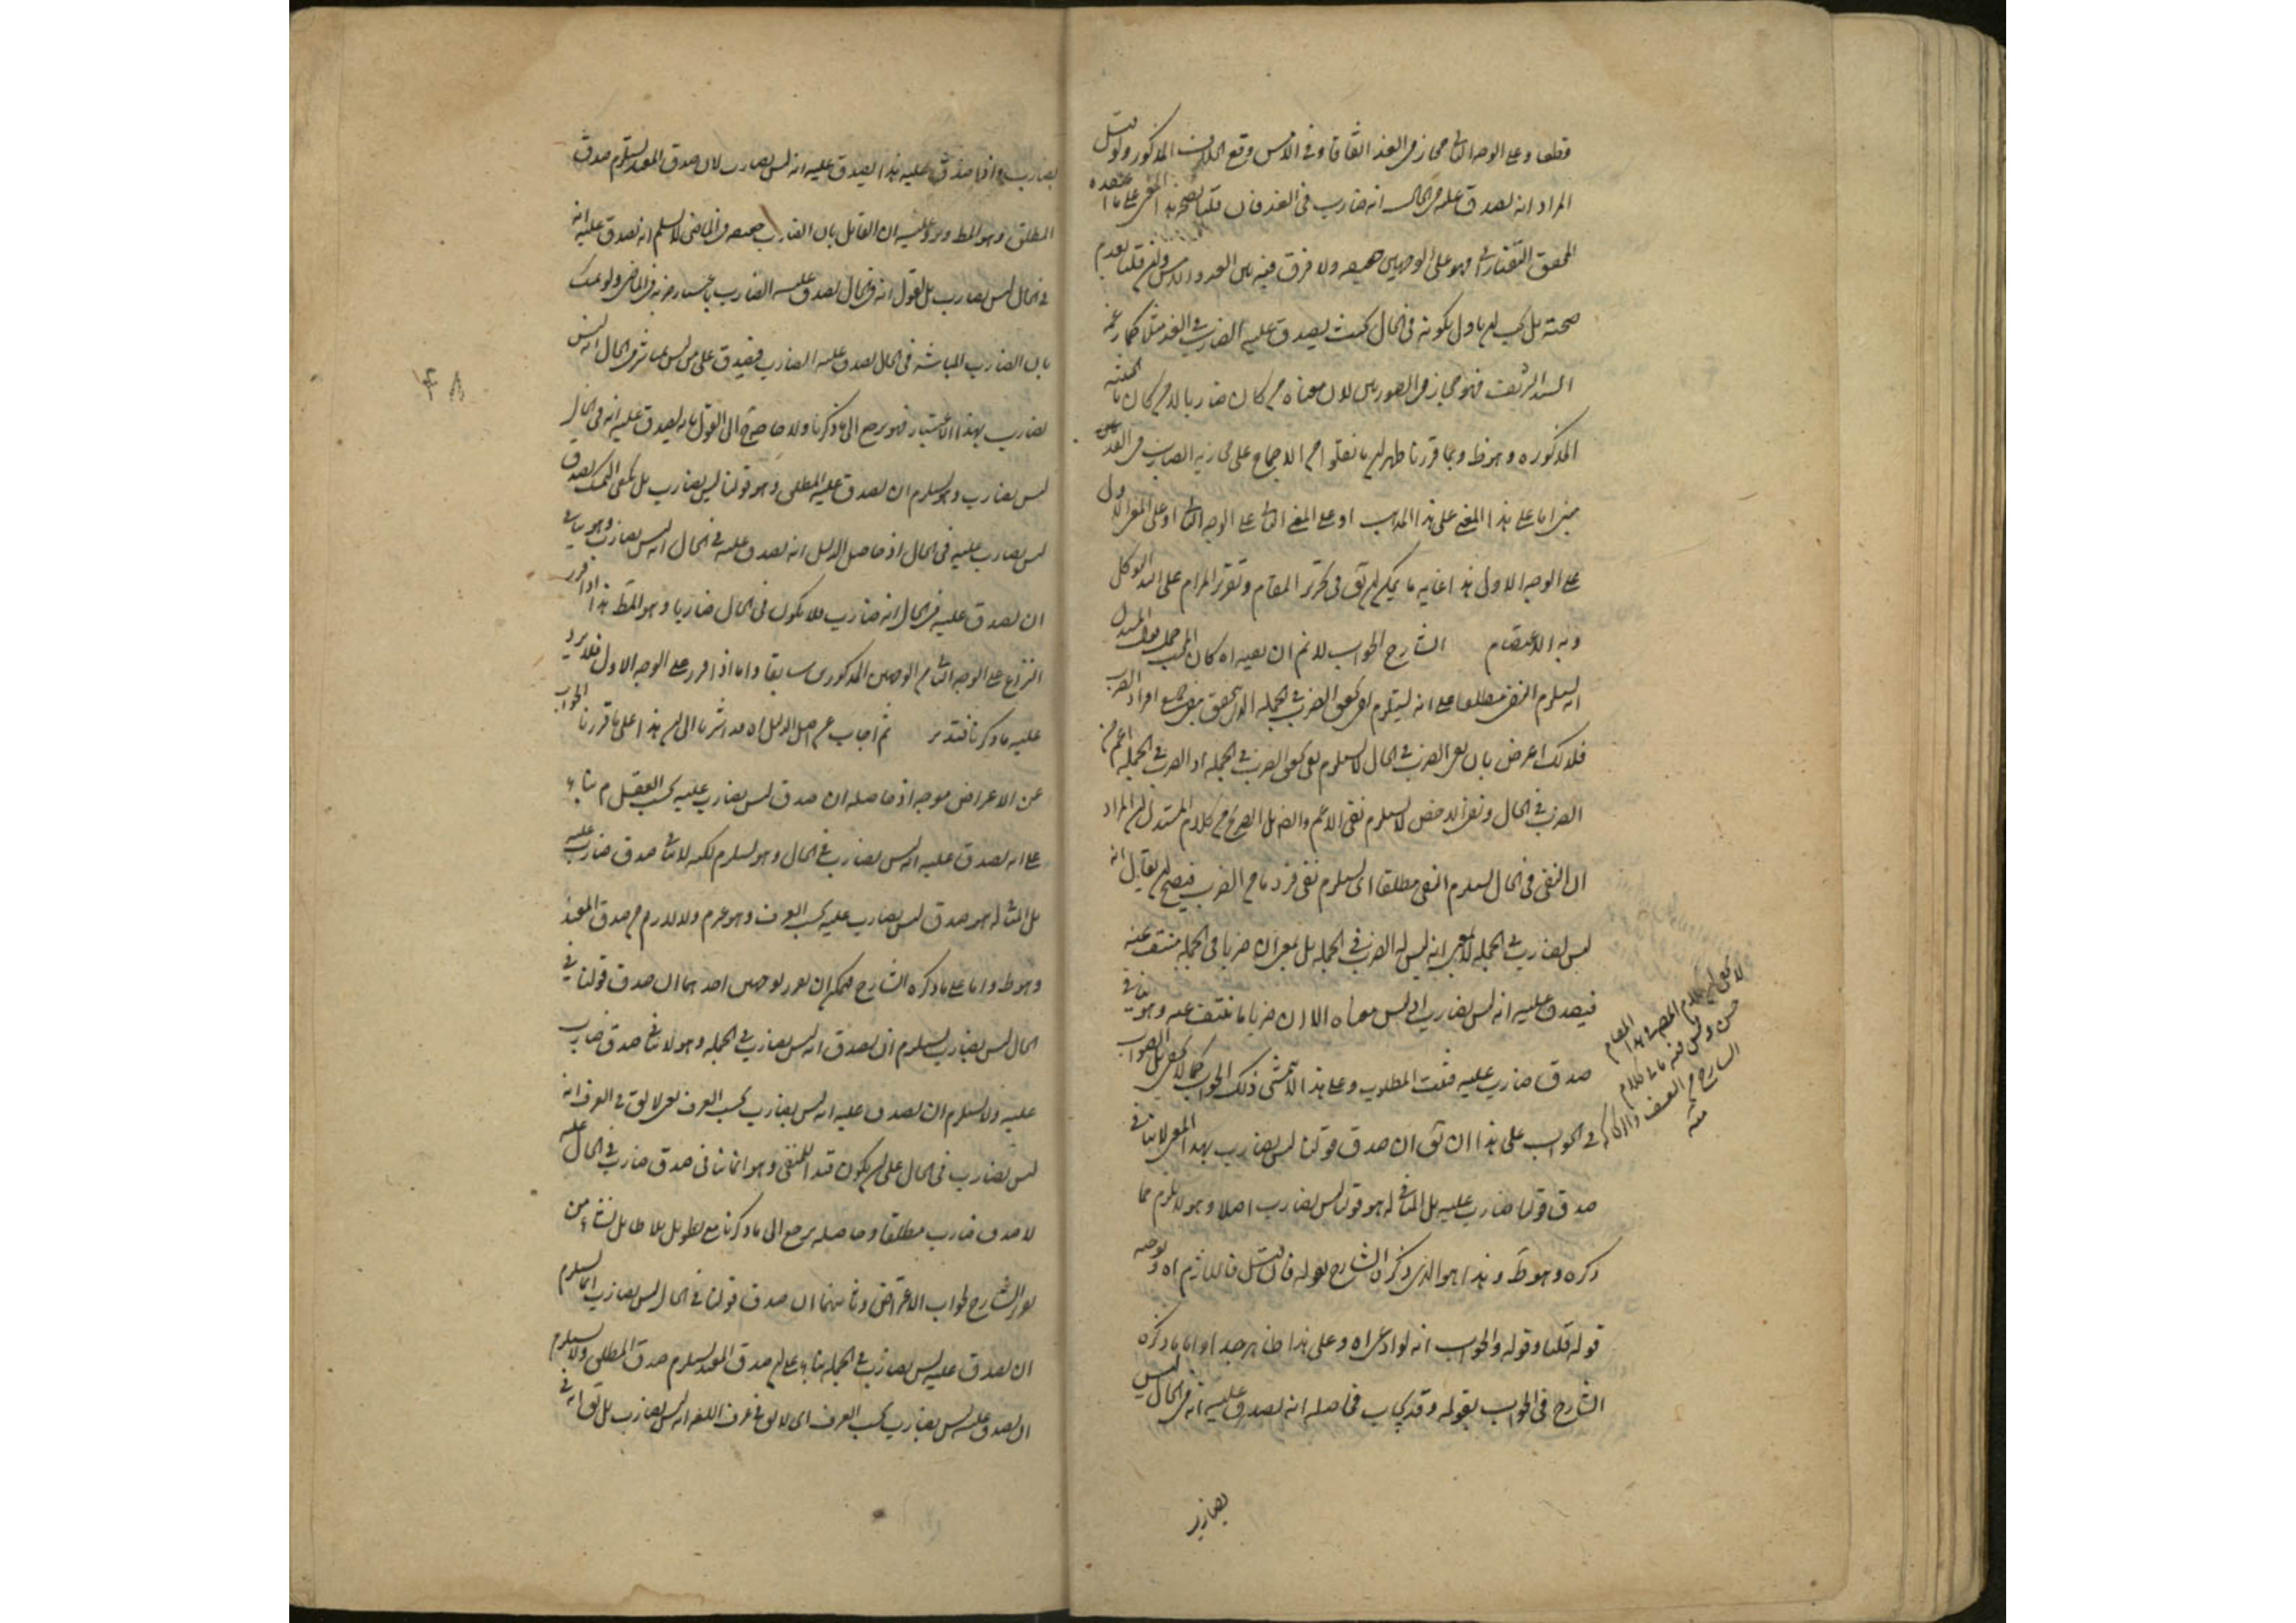 قطعا وعلى الوجه الثانى مجاز فى الغد اتفاقا وفى الامس وقع الخلاف المذكور ولو قيل
المراد انه يصدق عليه فى الحال انه ضارب فى الغد فان قلنا بصحة هذا المعنى على ما اعتقده
المحقق التفتازانى فهو على الوجهين حقيقة ولا فرق فيه بين الغد والامس وان قلنا بعدم
صحته بل يجب ان يأول بكونه فى الحال بحيث يصدق عليه الضارب فى الغد مثلا كما زعمه
السيد الشريف فهو مجاز فى الصورتين لان معناه ح كان ضاربا لا ح كان بالحيثية
المذكورة وهو ظ وبما قررنا ظهر ان ما نقلوا من الاجماع على مجازية الضارب فى الغد
مبنى اما على هذا المعنى على هذا المذهب او على المعنى الثانى على الوجه الثانى او على المعنى الاول
على الوجه الاول هذا غاية ما يمكن ان يق فى تحرير المقام وتقرير المرام على الله التوكل
وبه الاعتصام الشارح الجواب لا نم ان بعينه اه كان المجيب حمل قول المستدل
انه يستلزم النفى مطلقا على انه يستلزم نفى تحقق الضرب فى الجملة الذى يتحقق بنفى جميع افراد الضرب
فلذلك اعترض بان نفى الضرب فى الحال لا يستلزم نفى تحقق الضرب فى الجملة اذ الضرب فى الجملة اعم من
الضرب فى الحال ونفى الاخص لا يستلزم نفى الاعم والضر بل الصريح من كلام المستدل ان المراد
ان النفى فى الحال يستلزم النفى مطلقا اى يستلزم نفى فرد ما من الضرب فيصح ان يقال انه
ليس بضارب فى الجملة لا بمعنى انه ليس له الضرب فى الجملة بل بمعنى ان ضربا فى الجملة منتف عنه
فيصدق عليه انه ليس بضارب اذ ليس معناه الا ان ضربا ما منتف عنه وهو ينافى
صدق ضارب عليه فثبت المطلوب وعلى هذا لا يتمشى ذلك الجواب كما لا يخفى بل الصواب
فى الجواب على هذا ان يق ان صدق قولنا ليس بضارب بهذا المعنى لا ينافى
صدق قولنا ضارب عليه بل المنافى له هو قولنا ليس بضارب اصلا وهو لا يلزم مما
ذكره وهو ظ وهذا هو الذى ذكره الشارح بقوله فان قيل فاللازم اه وتوجه
قوله قلنا وقوله والجواب انه لو ادعى اه وعلى هذا ظاهر جدا واما ما ذكره
الشارح فى الجواب بقوله وقد يجاب فحاصله انه يصدق عليه انه فى الحال ليس
بضارب
لا يخفى ان كلام المصـ فى هذا المقام
حسن وليس فيه ما فى كلام
الشارح من التعسف والركاكة
منه
بضارب وانما صدق عليه هذا يصدق عليه انه ليس بضارب لان صدق المقيد يستلزم صدق
المطلق وهو المط ويرد عليه ان القائل بان الضارب حقيقة فى الماضى لا يسلم انه يصدق عليه انه
فى الحال ليس بضارب بل يقول انه فى الحال يصدق عليه الضارب باعتبار ضربه فى الماضى ولو تمسك
بان الضارب المباشر فى الحال يصدق عليه الضارب فيصدق على من ليس بمباشر فى الحال انه ليس
بضارب بهذا الاعتبار فهو يرجع الى ما ذكرنا ولا حاجة الى القول بانه يصدق عليه انه فى الحال
ليس بضارب وهو يستلزم ان يصدق عليه المطلق وهو قولنا ليس بضارب بل يكفى التمسك بصدق
ليس بضارب عليه فى الحال اذ حاصل الدليل انه يصدق عليه فى الحال انه ليس بضارب وهو ينافى
ان يصدق عليه فى الحال انه ضارب فلا يكون فى الحال ضاربا وهو المط هذا اذا قرر
النزاع على الوجه الثانى من الوجهين المذكورين سابقا واما اذا قرر على الوجه الاول فلا يرد
عليه ما ذكرنا فتدبر ثم اجاب عن اصل الدليل اه قد اشرنا الى ان هذا على ما قررنا الجواب
عن الاعتراض موجه اذ حاصله ان صدق ليس بضارب عليه بحسب العقل م بناء
على انه يصدق عليه انه ليس بضارب فى الحال وهو يستلزم لكنه لا ينافى صدق ضارب عليه
بل المنافى له هو صدق ليس بضارب عليه بحسب العرف وهو غير م ولا يلزم من صدق المقيد
وهو ظ واما على ما ذكره الشارح فيمكن ان يقرر بوجهين احدهما ان صدق قولنا فى
الحال ليس بضارب يستلزم ان يصدق انه ليس بضارب فى الجملة وهو لا ينافى صدق ضارب
عليه ولا يستلزم ان يصدق عليه انه ليس بضارب بحسب العرف بمعنى لا يق فى العرف انه
ليس بضارب فى الحال على ان يكون قيدا للمنفى وهو انما ينافى صدق ضارب فى الحال عليه
لا صدق ضارب مطلقا وحاصله يرجع الى ما ذكرنا مع تطويل بلا طايل نشاء من
تقرير الشارح لجواب الاعتراض وثانيهما ان صدق قولنا فى الحال ليس بضارب انما يستلزم
ان يصدق عليه ليس بضارب فى الجملة بناء على ان صدق المقيد يستلزم صدق المطلق ولا يستلزم
ان يصدق عليه ليس بضارب بحسب العرف اى لا يق فى عرف اللغة انه ليس بضارب بل يق انه فى